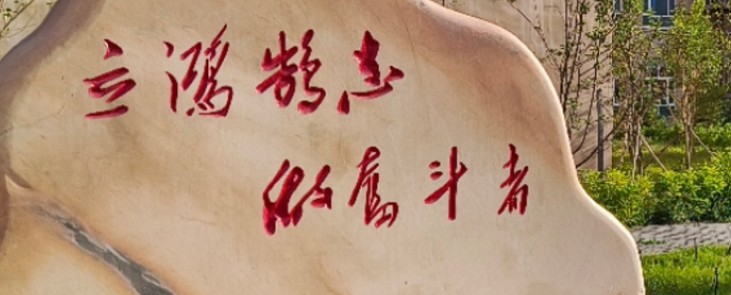 立鸿鹄志
做奋斗者